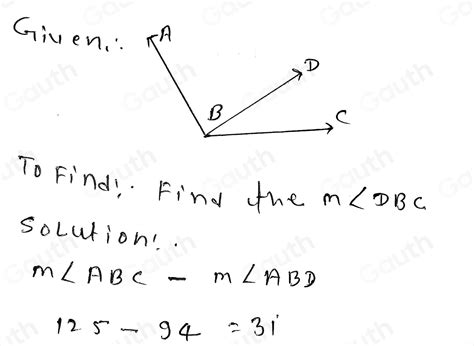 Given:.
A
D
B
C
To Find:. Find the m∠DBC
Solution:.
m∠ABC - m∠ABD
125 - 94 = 31
Gauth